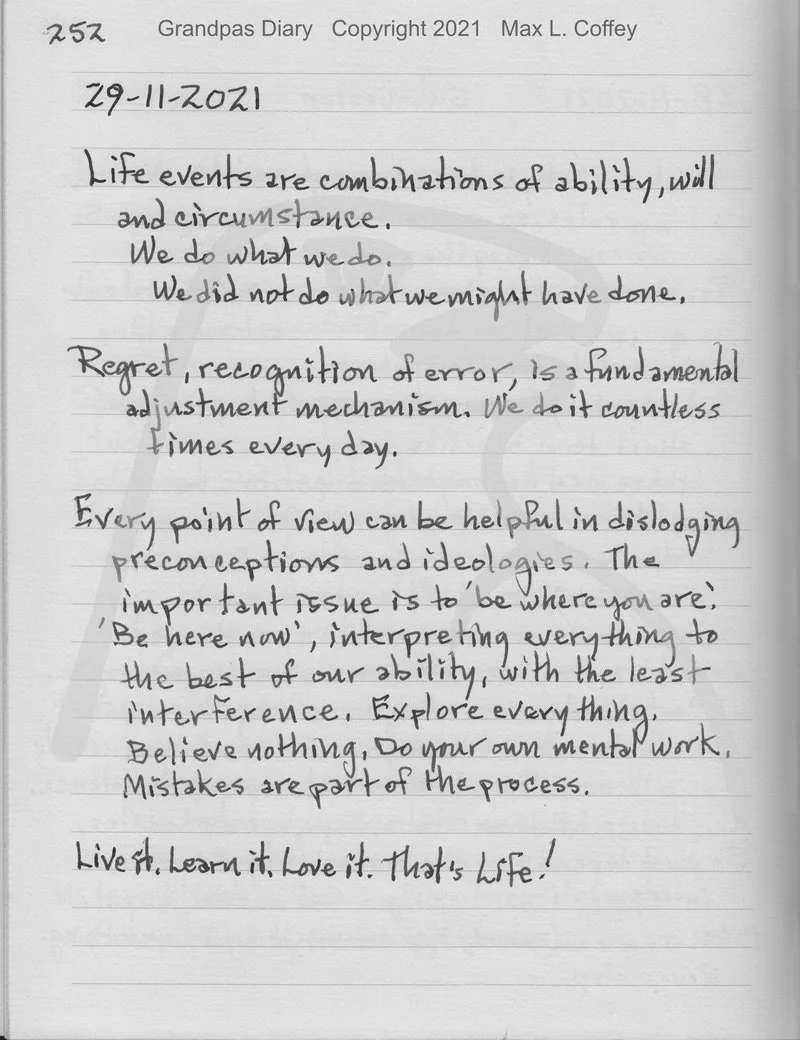 252 Grandpas Diary Copyright 2021 Max L. Coffey
29-11-2021
Life events are combinations of ability, will
and circumstance.
We do what we do.
We did not do what we might have done.
Regret, recognition of error, is a fundamental
adjustment mechanism. We do it countless
times every day.
Every point of view can be helpful in dislodging
preconceptions and ideologies. The
important issue is to 'be where you are'.
'Be here now', interpreting everything to
the best of our ability, with the least
interference. Explore everything.
Believe nothing. Do your own mental work.
Mistakes are part of the process.
Live it. Learn it. Love it. That's Life!